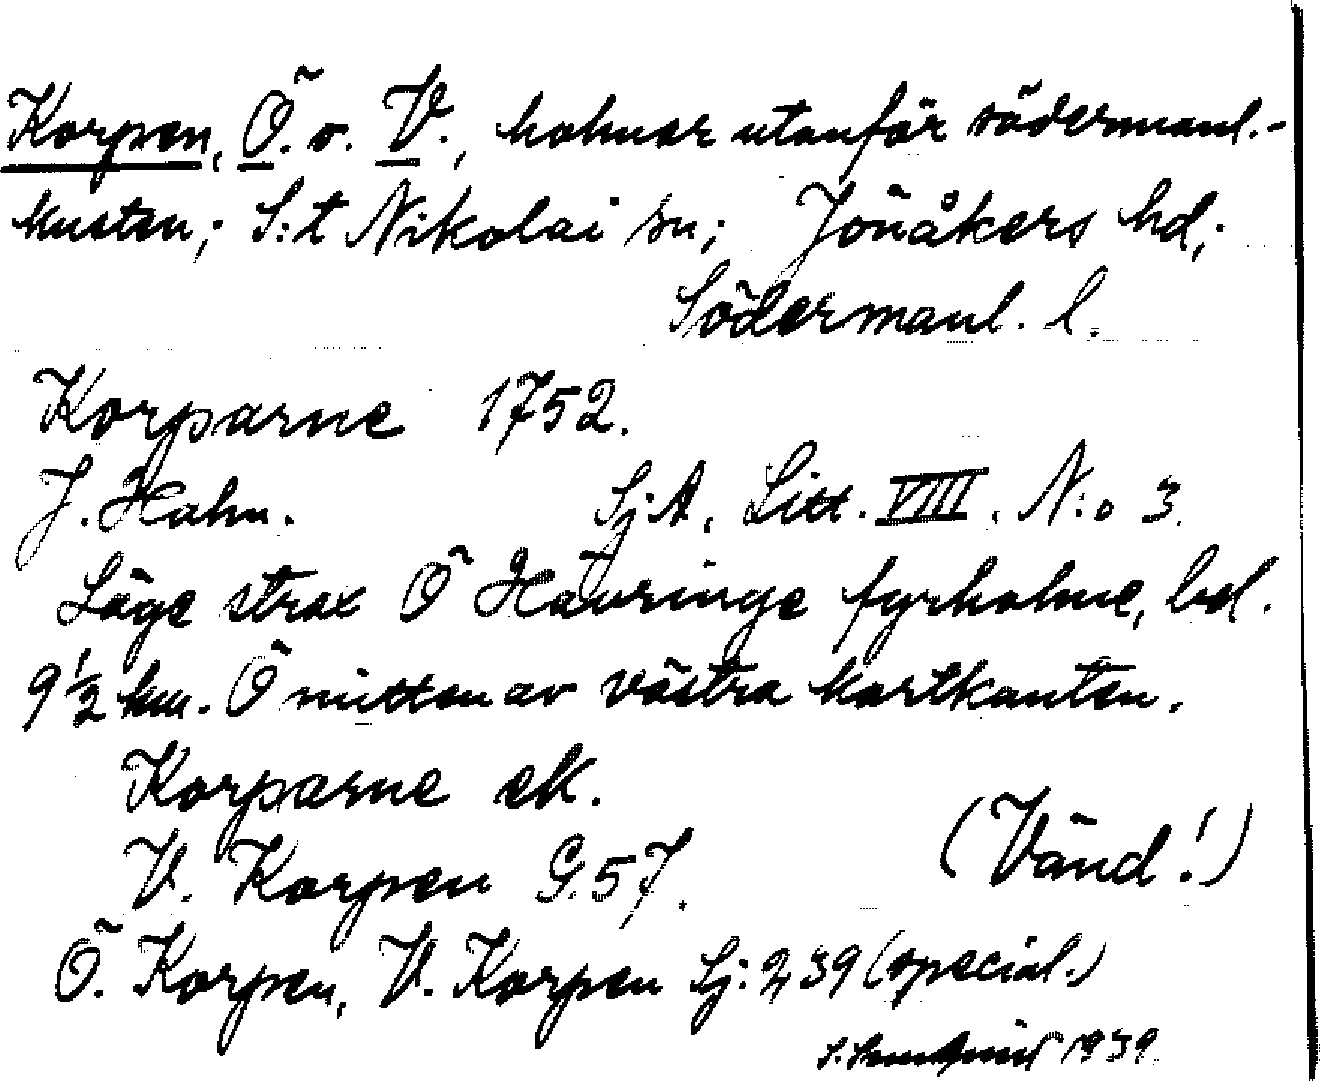 Korpen, Ö. o. V., holmar utanför södermanl.-
kusten; S:t Nikolai sn; Jönåkers hd;
Södermanl. l.
Korparne 1752.
J. Hahn. Sj.A. Litt. VIII. N:o 3.
Läge strax Ö Hävringe fyrholme, bel.
9 1/2 km. Ö mitten av västra kartkanten.
Korparne ek.
V. Korpen G. 57. (Vänd!)
Ö. Korpen, V. Korpen Sj: 239 (special.)
1939